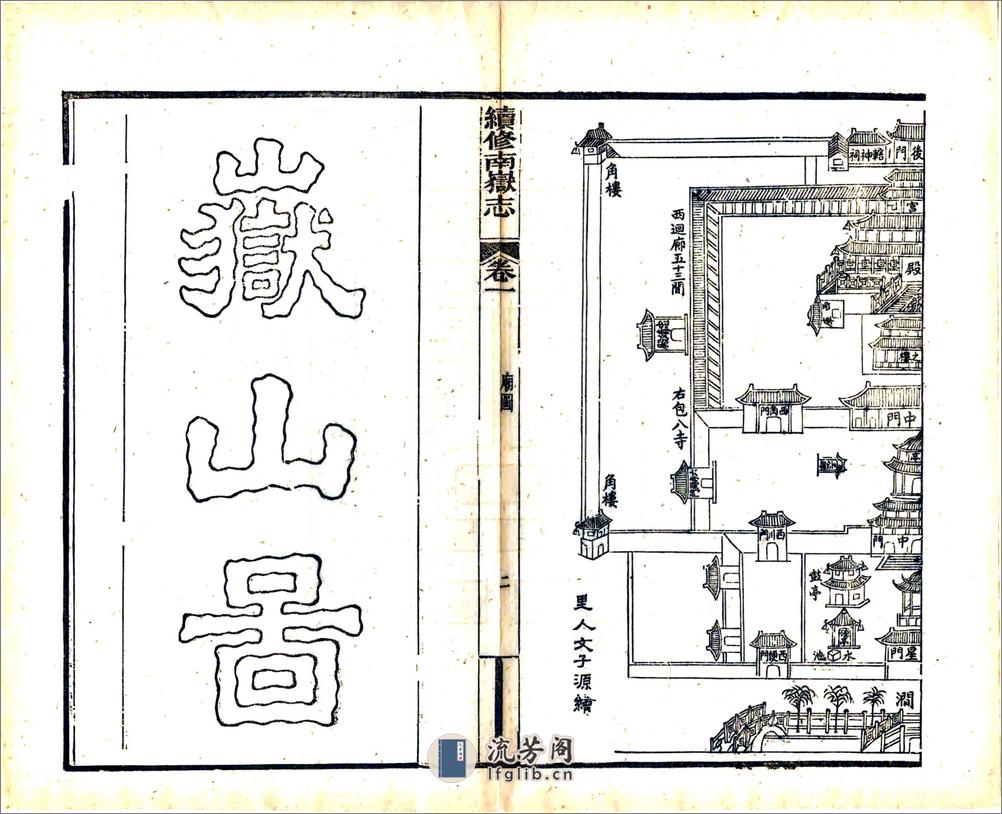 後門
轄神祠
角樓
宮
殿
西迴廊五十三間
之樓
中門
西角門
右包八寺
角樓
中門
西川門
鼓亭
水池
星門
澗
里人文子源繪
續修南嶽志
卷一
廟圖
二
嶽山啚
流芳阁
lfglib.cn